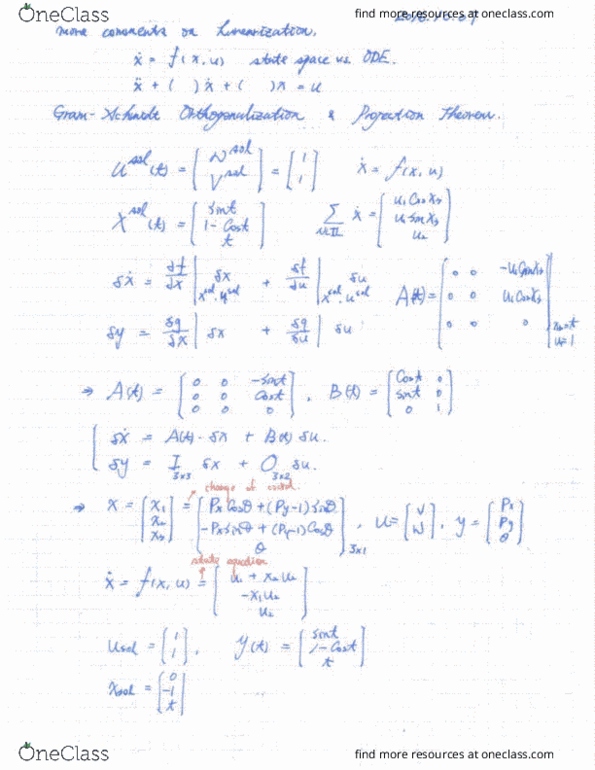 OneClass
find more resources at oneclass.com
more comments on Linearization.
ẋ = f(x, u)   state space vs. ODE.
ẍ + (   ) ẋ + (   ) x = u
Gram-Schmidt Orthogonalization & Projection Theorem.
u^sol(t) = [ω^sol; v^sol] = [1; 1]   ẋ = f(x, u)
x^sol(t) = [sint; 1 - Cost; t]   Σ_NLTI ẋ = [u₁ Cosx₃; u₁ sinx₃; u₂]
δẋ = δf/δx |_{x^sol, u^sol} δx + δf/δu |_{x^sol, u^sol} δu   A(t) = [0 0 -u₁Sinx₃; 0 0 u₁Cosx₃; 0 0 0] |_{x₃=t, u₁=1}
δy = δg/δx | δx + δg/δu | δu
⇒ A(t) = [0 0 -sint; 0 0 Cost; 0 0 0], B(t) = [Cost 0; sint 0; 0 1]
{ δẋ = A(t)·δx + B(t) δu.
δy = I_{3x3} δx + O_{3x2} δu.
change of coord.
⇒ x = [x₁; x₂; x₃] = [Px Cosθ + (Py-1) sinθ; -Px sinθ + (Py-1) Cosθ; θ]_{3x1}, u = [v; w], y = [Px; Py; θ]
state equation
ẋ = f(x, u) = [u₁ + x₂u₂; -x₁u₂; u₂]
u_sol = [1; 1],   y(t) = [sint; 1-Cost; t]
x_sol = [0; -1; t]
OneClass
find more resources at oneclass.com